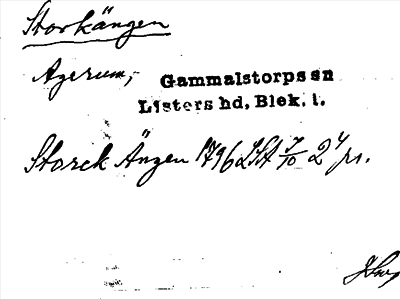 Storkängen
Agerum,
Gammalstorps sn
Listers hd, Blek. l.
Storck Ängen 1796 LSA 7/10 2 4 pr.